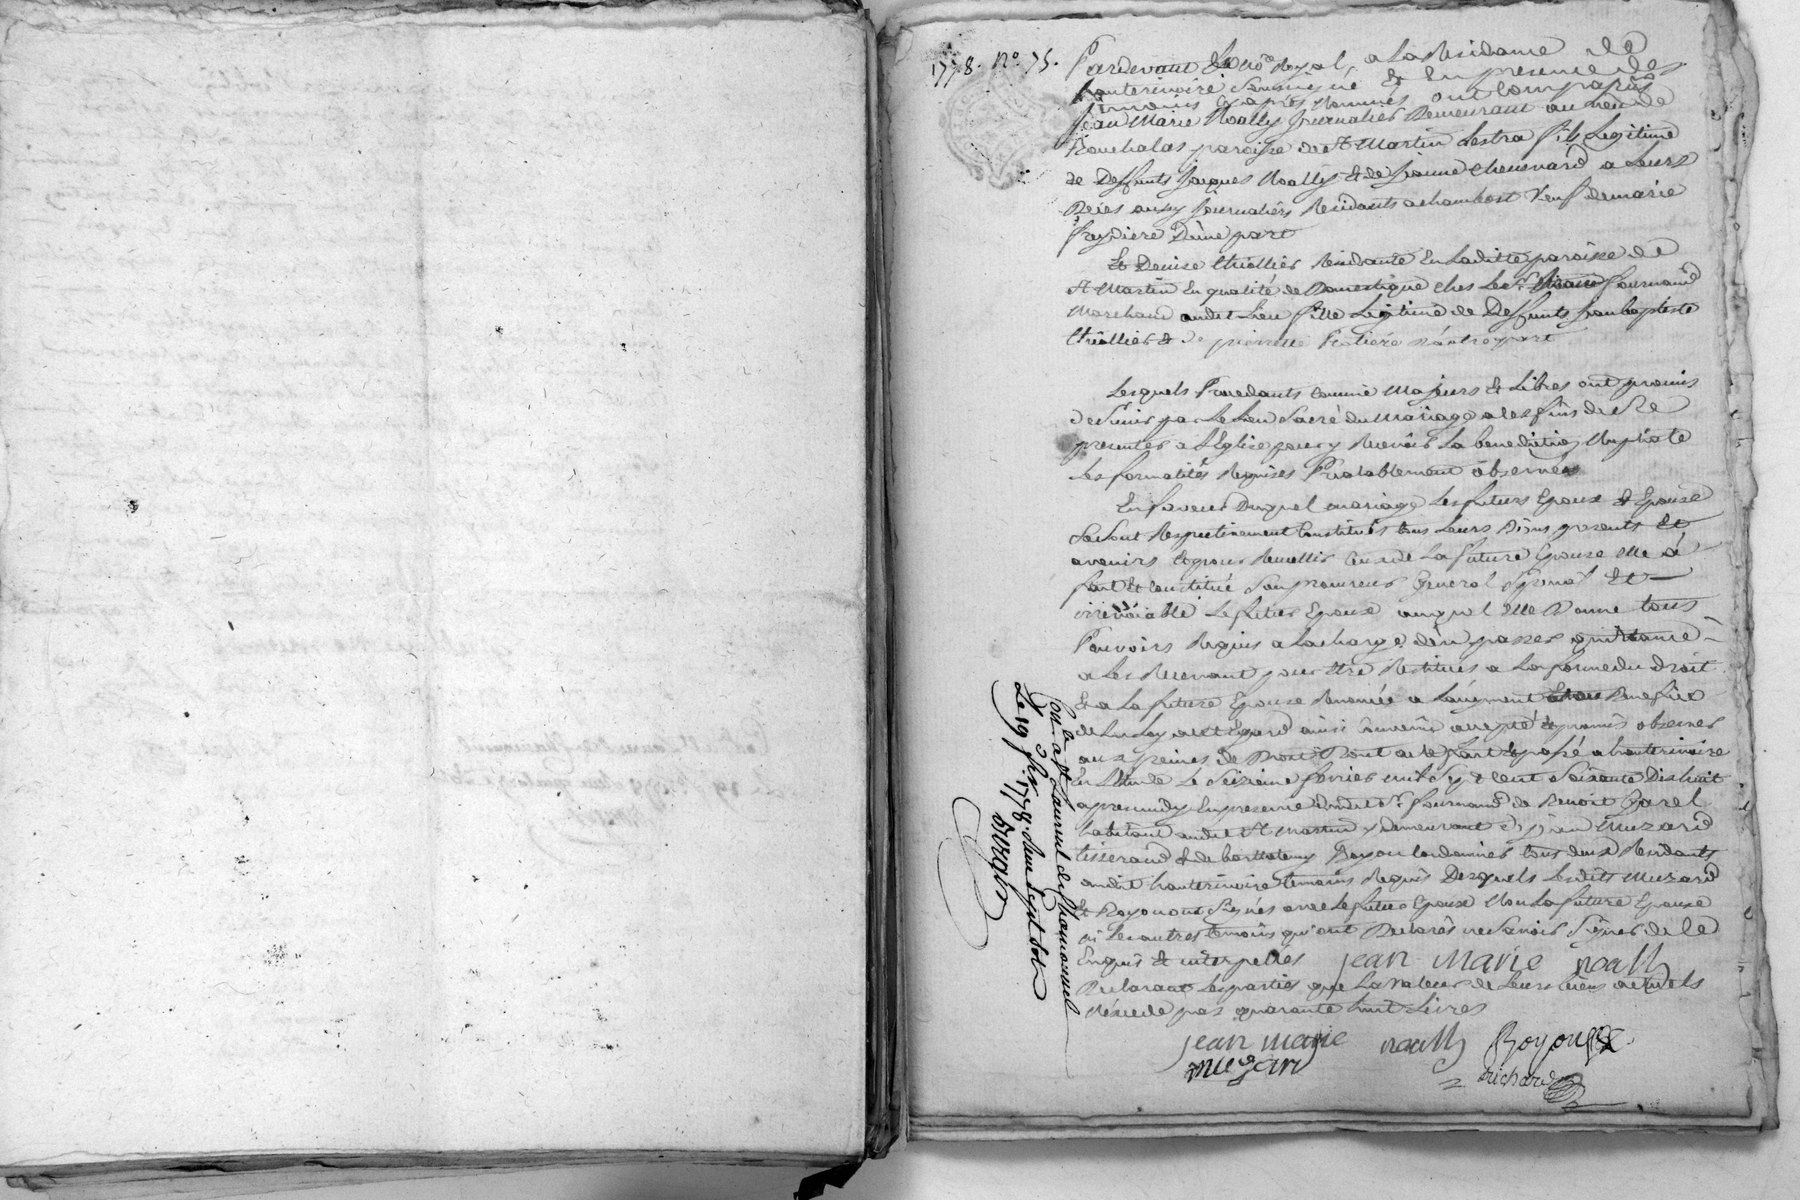 1778. No. 75.
Pardevant Le Nore Royal, a La Residance de
hauterivoire Soussigné & En presence des
temoins cy après Nommés ont Comparus
Jean Marie Noally Journalier Demeurant au lieu de
paroisse de St Martin Lestra fils Legitime
de Deffunts Jacques Noally & de Jeanne Chenevard a Leurs
Déces aussy Journaliers Residants a chambost Veuf de marie
D'une part
Et Denise thiollier Residante En Laditte paroisse de
St Martin En qualité de Domestique chés Le Sr fournand
Marchand audit Lieu fille Légitime de Deffunts Jean baptiste
thiollier & de pierrette D'autre part
Lesquels Procedants comme Majeurs & Libres ont promis
de S'unir par Le Lien Sacré du Mariage a Les fins de Se
presenter a L'Eglise pour y Recevoir La benediction Nuptiale
Les formalités Requises Préalablement observées
En faveur Duquel mariage Les futurs Epoux & Epouse
Se Sont Respectivement Constitués tous Leurs Biens presents Et
avenirs & pour Recueillir Ceux de La future Epouse Elle a
fait & Constitué Son procureur General Special Et
irrevocable Le futur Epoux auquel Elle Donne tous
Pouvoirs Requis a La charge d'en passer quittance
a Les Recevant pour Etre Restitués a La forme du Droit
Et a La future Epouse Renoncée a Benefice
de La Loy a cet Egard ainsi Convenu accepté & promis observer
aux peines de Droit Dont acte fait & passé a hauterivoire
En L'Etude Le Seizieme fevrier mil Sept Cent Soixante Dix huit
apres midy En presence Dudit Sr fournand de Benoit Garel
habitant audit St Martin y demeurant & Jean Muzard
tisserand & de barthelemy Royon Cordonnier tous deux Residants
audit hauterivoire temoins Requis Desquels Lesdits Muzard
Et Royon ont Signés avec Le futur Epoux Non La future Epouse
ni Les autres temoins qui ont Declarés ne Savoir Signer de Ce
Enquis & interpelles Jean Marie noally
Declarant Les parties que La valeur de Leurs biens actuels
N'éxcede pas quarante huit Livres
jean marie noally Royon
muzard
Richard
Con. a St Laurent de Chamousset
Le 19 fer. 1778.